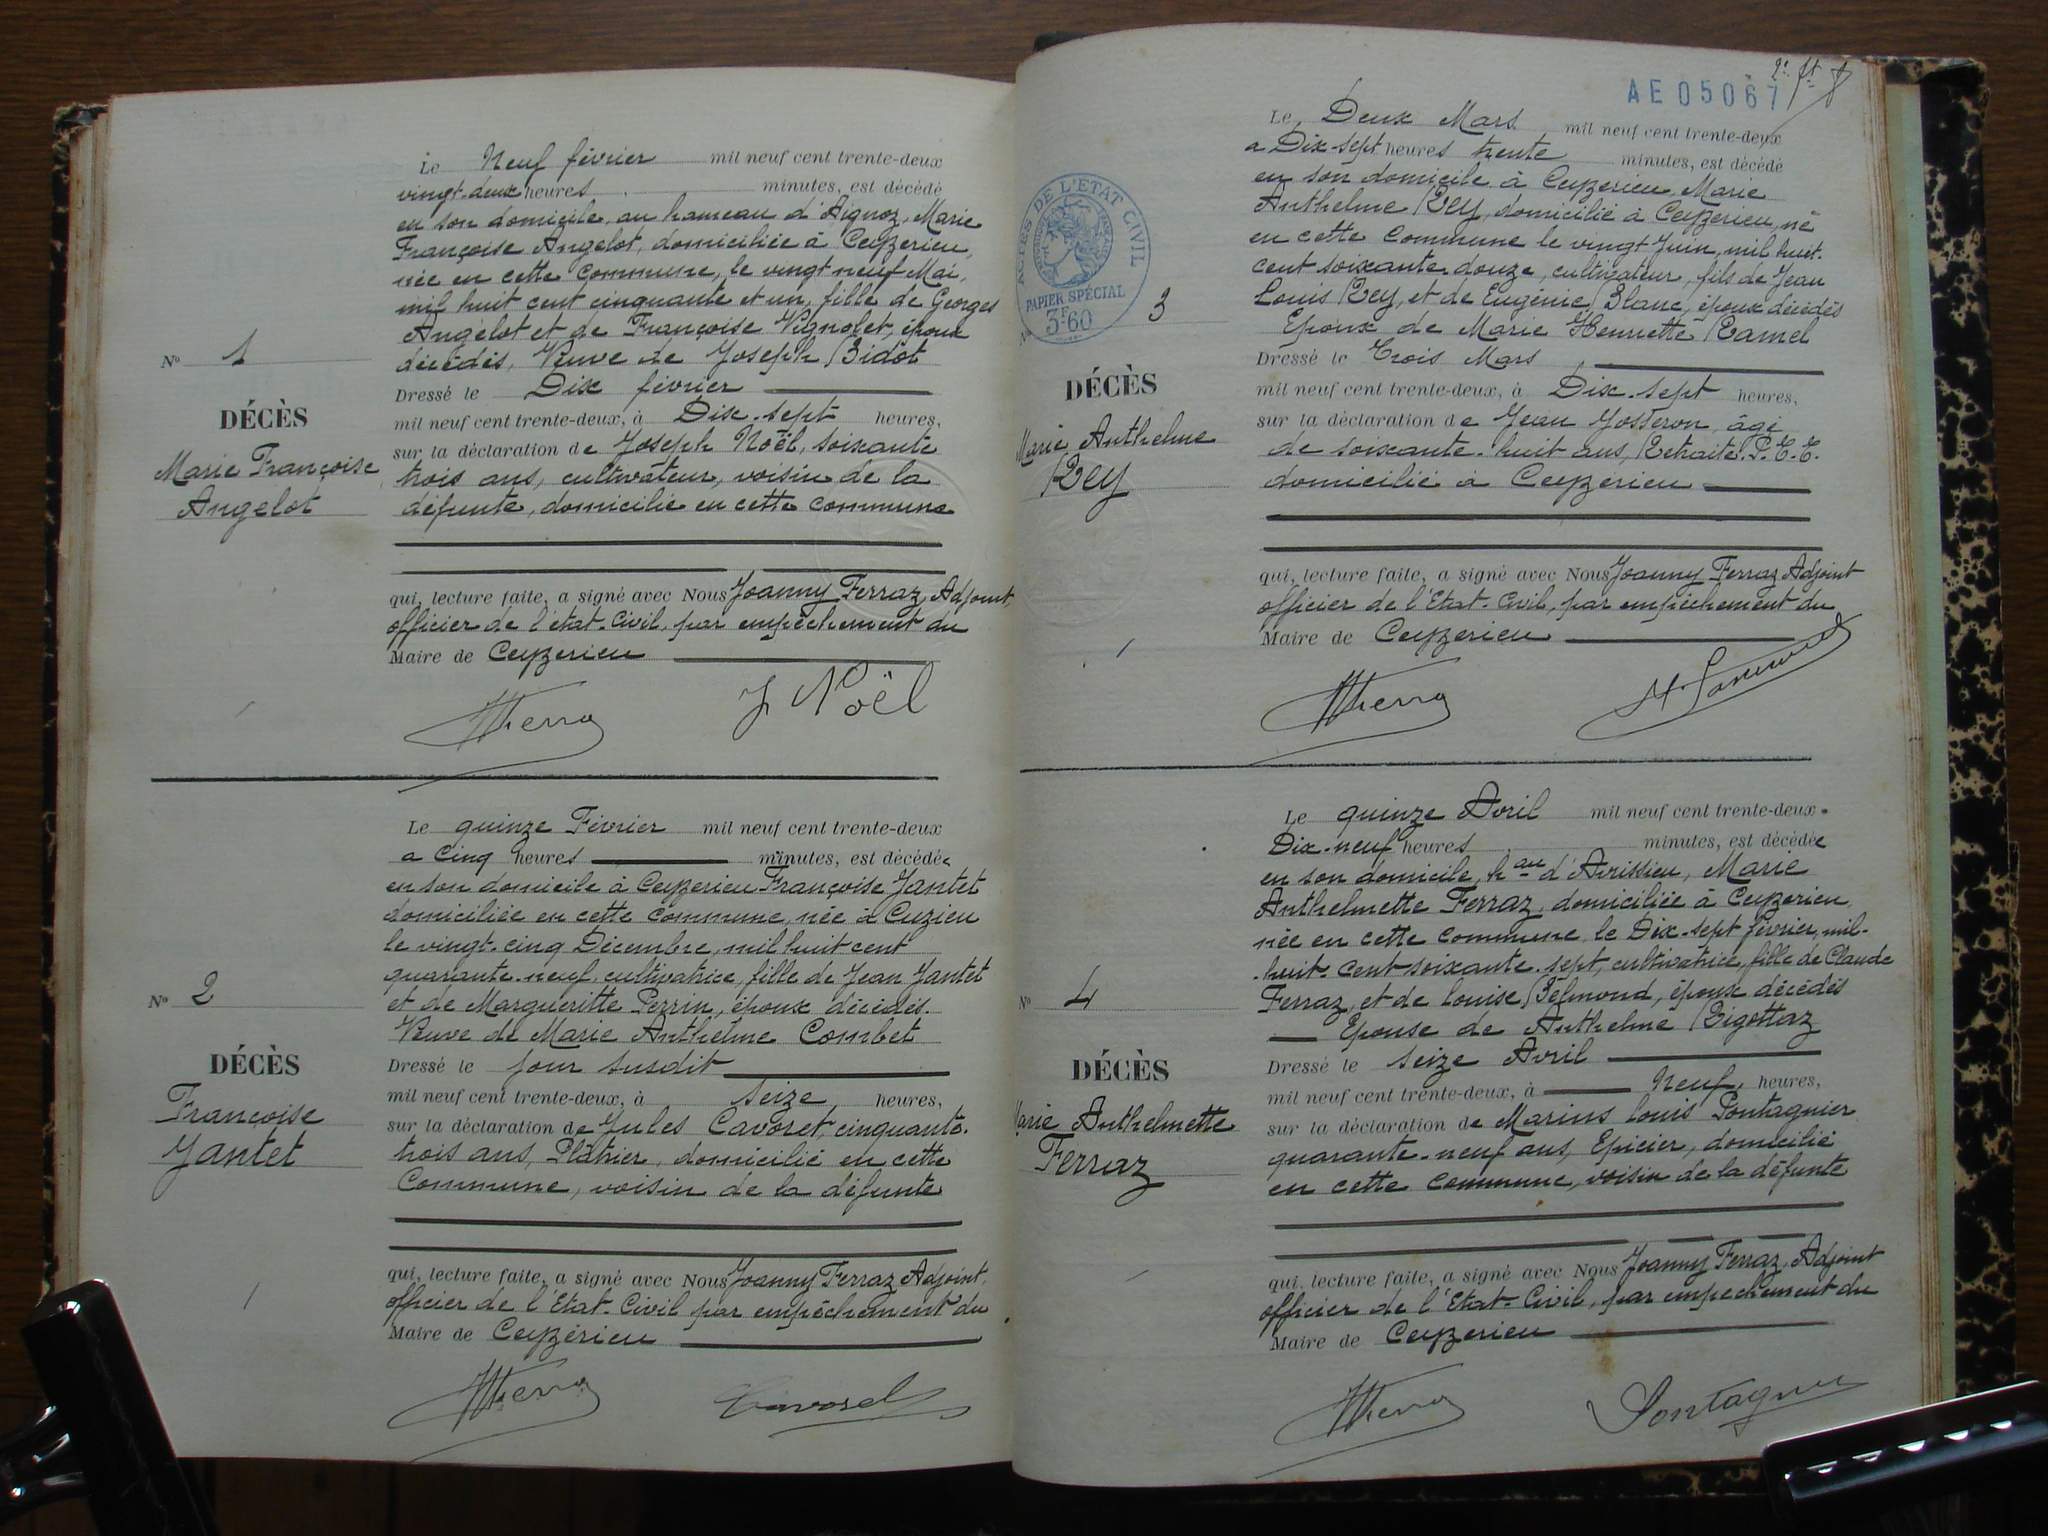 Le Neuf février mil neuf cent trente-deux
vingt-deux heures minutes, est décédé
en son domicile, au hameau d'Aignoz, Marie
Françoise Angelot, domiciliée à Ceyzerieu,
née en cette commune, le vingt neuf Mai,
mil huit cent cinquante et un, fille de Georges
Angelot et de Françoise Vignolet, époux
décédés, Veuve de Joseph Bidot
Nº 1
DÉCÈS
Marie Françoise
Angelot
Dressé le Dix février
mil neuf cent trente-deux, à Dix-sept heures,
sur la déclaration de Joseph Noël, soixante
trois ans, cultivateur, voisin de la
défunte, domicilié en cette commune
qui, lecture faite, a signé avec Nous Joanny Ferraz, Adjoint,
officier de l'état-Civil, par empêchement du
Maire de Ceyzerieu
J Noël
Le quinze Février mil neuf cent trente-deux
a Cinq heures minutes, est décédée
en son domicile à Ceyzerieu Françoise Jantet
domiciliée en cette commune, née à Cuzieu
le vingt-cinq Décembre, mil huit cent
quarante-neuf, cultivatrice, fille de Jean Jantet
et de Margueritte Perrin, époux décédés.
Veuve de Marie Anthelme Combet
Nº 2
DÉCÈS
Françoise
Jantet
Dressé le jour susdit
mil neuf cent trente-deux, à seize heures,
sur la déclaration de Jules Cavoret, cinquante-
trois ans, Plâtrier, domicilié en cette
Commune, voisin de la défunte
qui, lecture faite, a signé avec Nous Joanny Ferraz Adjoint,
officier de l'Etat-Civil par empêchement du
Maire de Ceyzérieu
Cavoret
AE 05067
ACTES DE L'ETAT CIVIL
PAPIER SPÉCIAL
3F60
Le Deux Mars mil neuf cent trente-deux
a Dix-sept heures trente minutes, est décédé
en son domicile à Ceyzerieu Marie
Anthelme Rey, domicilié à Ceyzerieu, né
en cette Commune le vingt Juin, mil huit-
cent soixante douze, cultivateur, fils de Jean
Louis Rey, et de Eugénie Blanc, époux décédés
Epoux de Marie Henriette Ramel
Nº 3
DÉCÈS
Marie Anthelme
Rey
Dressé le Trois Mars
mil neuf cent trente-deux, à Dix-sept heures,
sur la déclaration de Jean Josseron, âgé
de soixante-huit ans, Retraité P.T.T.
domicilié à Ceyzerieu
qui, lecture faite, a signé avec Nous Joanny Ferraz Adjoint
officier de l'Etat-Civil, par empêchement du
Maire de Ceyzerieu
Le quinze Avril mil neuf cent trente-deux
Dix-neuf heures minutes, est décédée
en son domicile, hau d'Avrissieu, Marie
Anthelmette Ferraz, domiciliée à Ceyzerieu,
née en cette commune le Dix-sept février, mil-
huit-cent soixante-sept, cultivatrice, fille de Claude
Ferraz, et de Louise, époux décédés
Epouse de Anthelme Rigottaz
Nº 4
DÉCÈS
Marie Anthelmette
Ferraz
Dressé le seize Avril
mil neuf cent trente-deux, à Neuf heures,
sur la déclaration de Marius Louis Pontagnier
quarante-neuf ans, Epicier, domicilié
en cette commune, voisin de la défunte
qui, lecture faite, a signé avec Nous Joanny Ferraz, Adjoint
officier de l'Etat-Civil, par empechement du
Maire de Ceyzerieu